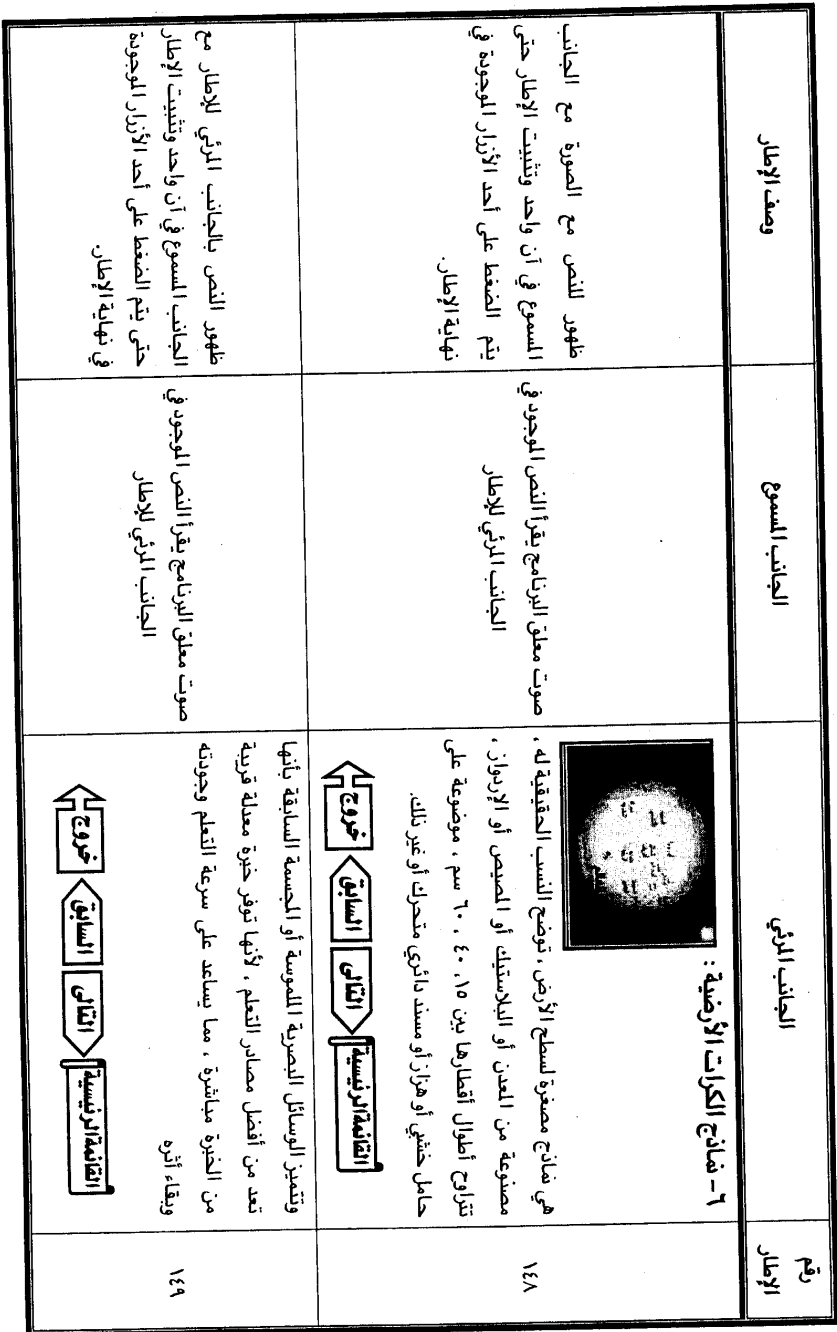 رقم
الإطار
الجانب المرئي
الجانب المسموع
وصف الإطار
١٤٨
٦- نماذج الكرات الأرضية :
هي نماذج مصغرة لسطح الأرض ، توضح النسب الحقيقية له ،
مصنوعة من المعدن أو البلاستيك أو المصيص أو الإردواز ،
تتراوح أطوال أقطارها بين ١٥ ، ٤٠ ، ٦٠ سم ، موضوعة على
حامل خشبي أو هزاز أو مسند دائري متحرك أو غير ذلك.
القائمة الرئيسية
التالى
السابق
خروج
صوت معلق البرنامج يقرأ النص الموجود في
الجانب المرئي للإطار
ظهور للنص مع الصورة مع الجانب
المسموع في آن واحد وتثبيت الإطار حتى
يتم الضغط على أحد الأزرار الموجودة في
نهاية الإطار.
١٤٩
وتتميز الوسائل البصرية الملموسة أو المجسمة السابقة بأنها
تعد من أفضل مصادر التعلم ، لأنها توفر خبرة معدلة قريبة
من الخبرة مباشرة ، مما يساعد على سرعة التعلم وجودته
وبقاء أثره
القائمة الرئيسية
التالى
السابق
خروج
صوت معلق البرنامج يقرأ النص الموجود في
الجانب المرئي للإطار
ظهور النص بالجانب المرئي للإطار مع
الجانب السموع في آن واحد وتثبيت الإطار
حتى يتم الضغط على أحد الأزرار الموجودة
في نهاية الإطار.